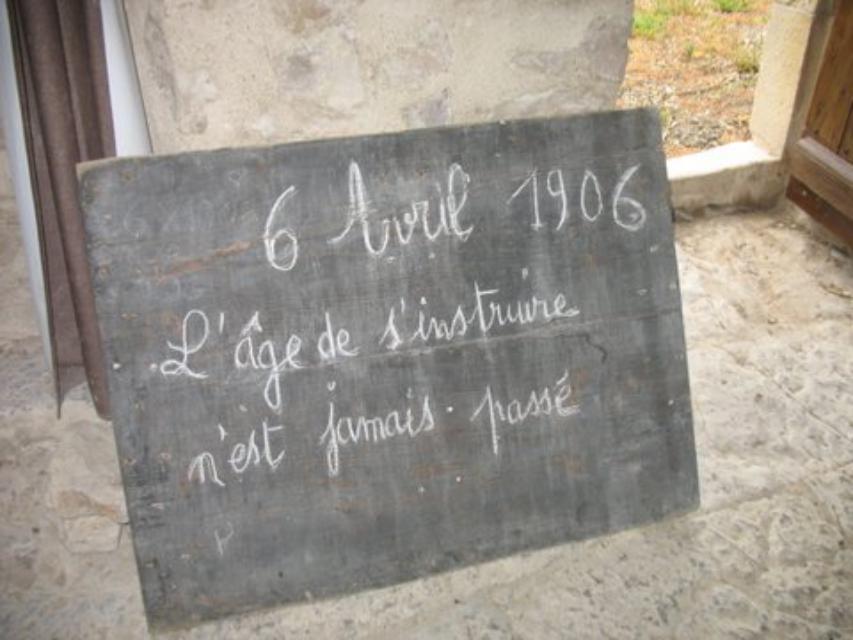 6 Avril 1906
L'âge de s'instruire
n'est jamais passé
p